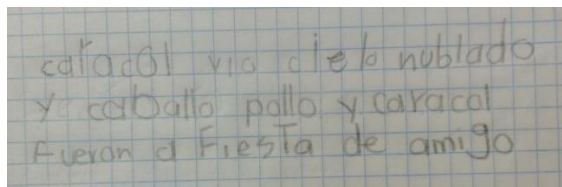 caracol vio cielo nublado
y caballo pollo y caracol
fueron a Fiesta de amigo